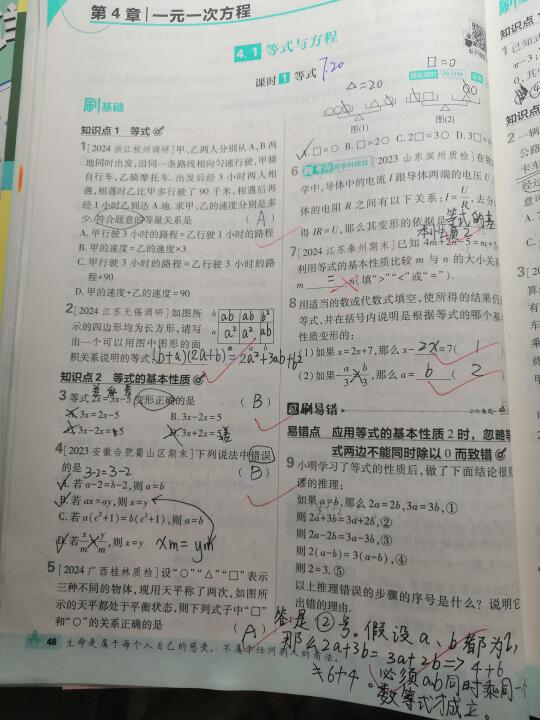 第4章 一元一次方程
4.1 等式与方程
课时1 等式 7.20
刷基础
知识点1 等式
1 [2024浙江杭州调研]甲、乙两人分别从A、B两
地同时出发,沿同一条路线相向匀速行驶,甲骑
自行车,乙骑摩托车.出发后经3小时两人相
遇,相遇时乙比甲多行驶了90千米,相遇后再
经1小时乙到达A地.求甲、乙的速度分别是多
少.符合题意的等量关系是 (A)
A.甲行驶3小时的路程=乙行驶1小时的路程
B.甲的速度=乙的速度×3
C.甲行驶3小时的路程=乙行驶3小时的路
程+90
D.甲的速度+乙的速度=90
2 [2024江苏无锡调研]如图所
示的四边形均为长方形,请写
出一个可以用图中图形的面
积关系说明的等式:(b+a)(2a+b)=2a²+3ab+b²
b ab ab b²
a a² a² ab
知识点2 等式的基本性质
3 等式2x=3x-5变形正确的是 (B)
A.3x=2x-5 B.3x-2x=5
D.3x+2x=
4 [2023安徽合肥蜀山区期末]下列说法中错误
的是 3-2=3-2 (B)
A.若a-2=b-2,则a=b
B.若ax=ay,则x=y
C.若a(c²+1)=b(c²+1),则a=b
D.若x/m=y/m,则x=y xm=ym
5 [2024广西桂林质检]设“○”“△”“□”表示
三种不同的物体,现用天平称了两次,如图所
示的天平都处于平衡状态,则下列式子中“□”
和“○”的关系正确的是 (A)
□=○
△=2○
建议用时:20分钟
图(1) 图(2)
A.□=○ B.□=2○ C.2□=3○ D.3□=
6 跨学科综合 [2023山东滨州质检]在物
学中,导体中的电流I跟导体两端的电压U
体的电阻R之间有以下关系:I=U/R,去分
得IR=U,那么其变形的依据是等式的基
本性质2
7 [2024江苏泰州期末]已知4m+2n-5=m+5
利用等式的基本性质比较m与n的大小关
m = n(填“>”“<”或“=”).
8 用适当的数或代数式填空,使所得的结果仍
等式,并在括号内说明是根据等式的哪个基
性质变形的:
(1)如果x=2x+7,那么x-2x=7(1)
(2)如果-a/3=-b/3,那么a=b(2)
刷易错
易错点 应用等式的基本性质2时,忽略等
式两边不能同时除以0而致错
9 小明学习了等式的性质后,做了下面结论很
谬的推理:
如果a=b,那么2a=2b,3a=3b,①
则2a+3b=3a+2b,②
则2a-2b=3a-3b,③
则2(a-b)=3(a-b),④
则2=3.⑤
以上推理错误的步骤的序号是什么?说明
出错的理由.
答:是②号。假设a、b都为2,
那么2a+3b=3a+2b=>4+6
=6+4。必须ab同时乘同一个
数等式才成立。
48 生命是属于每个人自己的感受,不属于任何别人的看法.